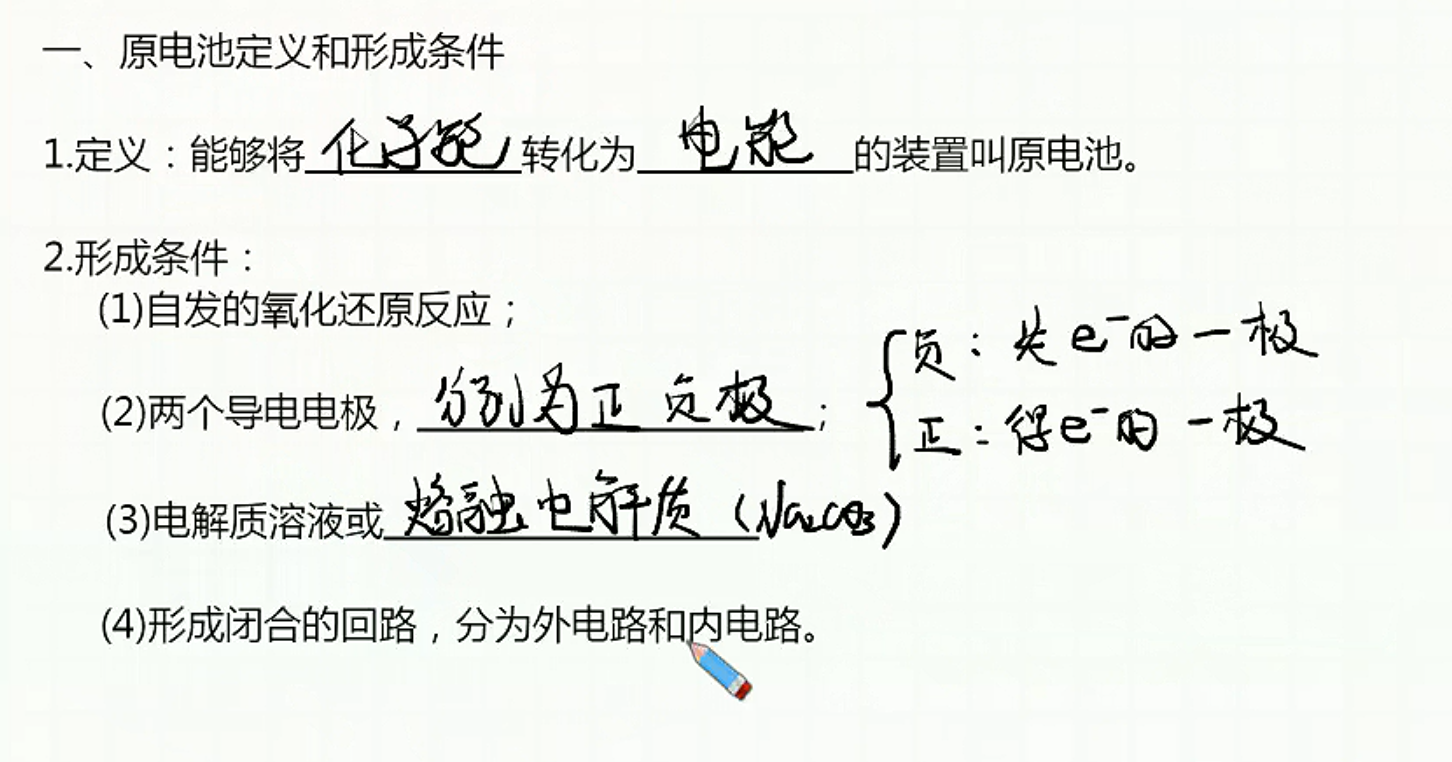 一、原电池定义和形成条件
1.定义：能够将化学能转化为电能的装置叫原电池。
2.形成条件：
(1)自发的氧化还原反应；
负：失e⁻的一极
(2)两个导电电极，分别为正负极；
正：得e⁻的一极
(3)电解质溶液或熔融电解质（Na₂CO₃）
(4)形成闭合的回路，分为外电路和内电路。